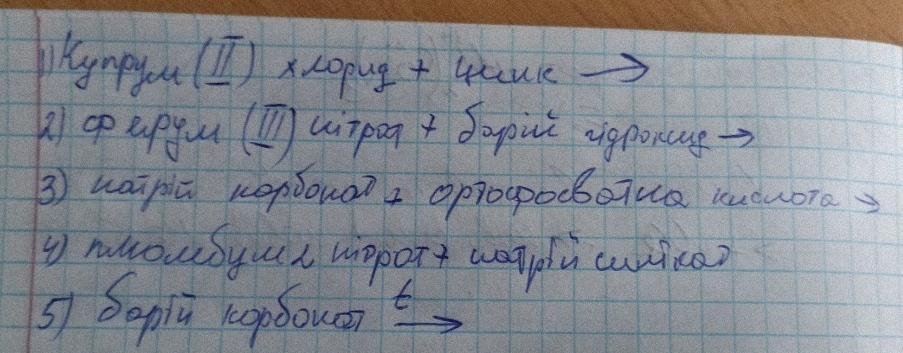 1) Купрум (II) хлорид + цинк →
2) Ферум (III) нітрат + барій гідроксид →
3) натрій карбонат + ортофосватна кислота →
4) плюмбум 2 нітрат + натрій силікат
5) барій карбонат t →